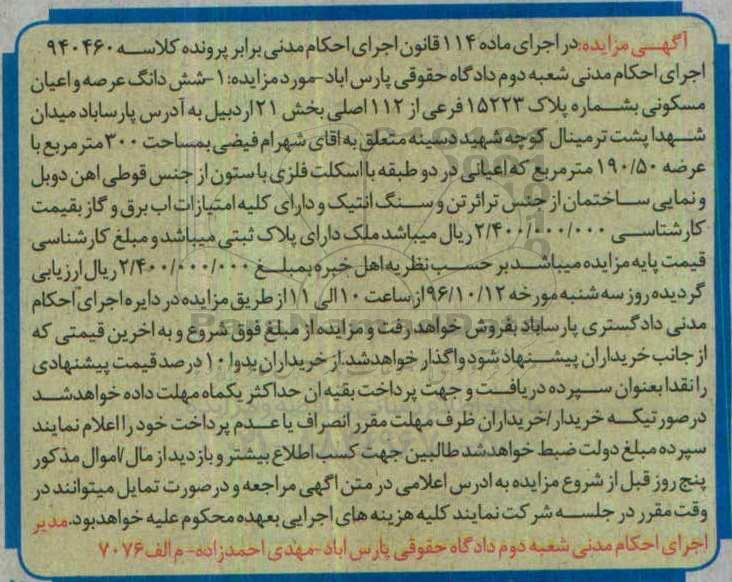 آگهی مزایده:در اجرای ماده ۱۱۴ قانون اجرای احکام مدنی برابر پرونده کلاسه ۹۴۰۴۶۰
اجرای احکام مدنی شعبه دوم دادگاه حقوقی پارس اباد-مورد مزایده: ۱-شش دانگ عرصه و اعیان
مسکونی بشماره پلاک ۱۵۲۲۳ فرعی از ۱۱۲ اصلی بخش ۲۱ اردبیل به آدرس پارساباد میدان
شهدا پشت ترمینال کوچه شهید دسینه متعلق به اقای شهرام فیضی بمساحت ۳۰۰ متر مربع با
عرصه ۱۹۰/۵۰ متر مربع که اعیانی در دو طبقه با اسکلت فلزی با ستون از جنس قوطی اهن دوبل
و نمایی ساختمان از جنس تراثرتن و سنگ انتیک و دارای کلیه امتیازات اب برق و گاز بقیمت
کارشناسی ۲/۴۰۰/۰۰۰/۰۰۰ ریال میباشد ملک دارای پلاک ثبتی میباشد و مبلغ کارشناسی
قیمت پایه مزایده میباشد بر حسب نظریه اهل خبره بمبلغ ۲/۴۰۰/۰۰۰/۰۰۰ ریال ارزیابی
گردیده روز سه شنبه مورخه ۹۶/۱۰/۱۲ از ساعت ۱۰ الی ۱۱ از طریق مزایده در دایره اجرای احکام
مدنی دادگستری پارساباد بفروش خواهد رفت و مزایده از مبلغ فوق شروع و به اخرین قیمتی که
از جانب خریداران پیشنهاد شود واگذار خواهد شد. از خریداران بدوا ۱۰ درصد قیمت پیشنهادی
را نقدا بعنوان سپرده دریافت و جهت پرداخت بقیه ان حداکثر یکماه مهلت داده خواهد شد
در صورتیکه خریدار/خریداران ظرف مهلت مقرر انصراف یا عدم پرداخت خود را اعلام نمایند
سپرده مبلغ دولت ضبط خواهد شد طالبین جهت کسب اطلاع بیشتر و بازدید از مال/اموال مذکور
پنج روز قبل از شروع مزایده به ادرس اعلامی در متن اگهی مراجعه و در صورت تمایل میتوانند در
وقت مقرر در جلسه شرکت نمایند کلیه هزینه های اجرایی بعهده محکوم علیه خواهد بود. مدیر
اجرای احکام مدنی شعبه دوم دادگاه حقوقی پارس اباد -مهدی احمدزاده- م الف ۷۰۷۶